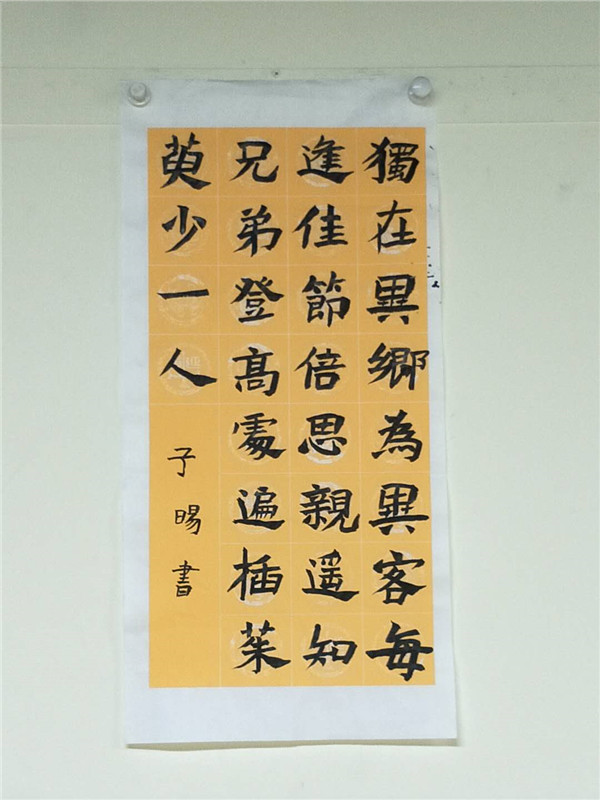 獨在異鄉為異客每
逢佳節倍思親遥知
兄弟登高處遍插茱
萸少一人
子暘書